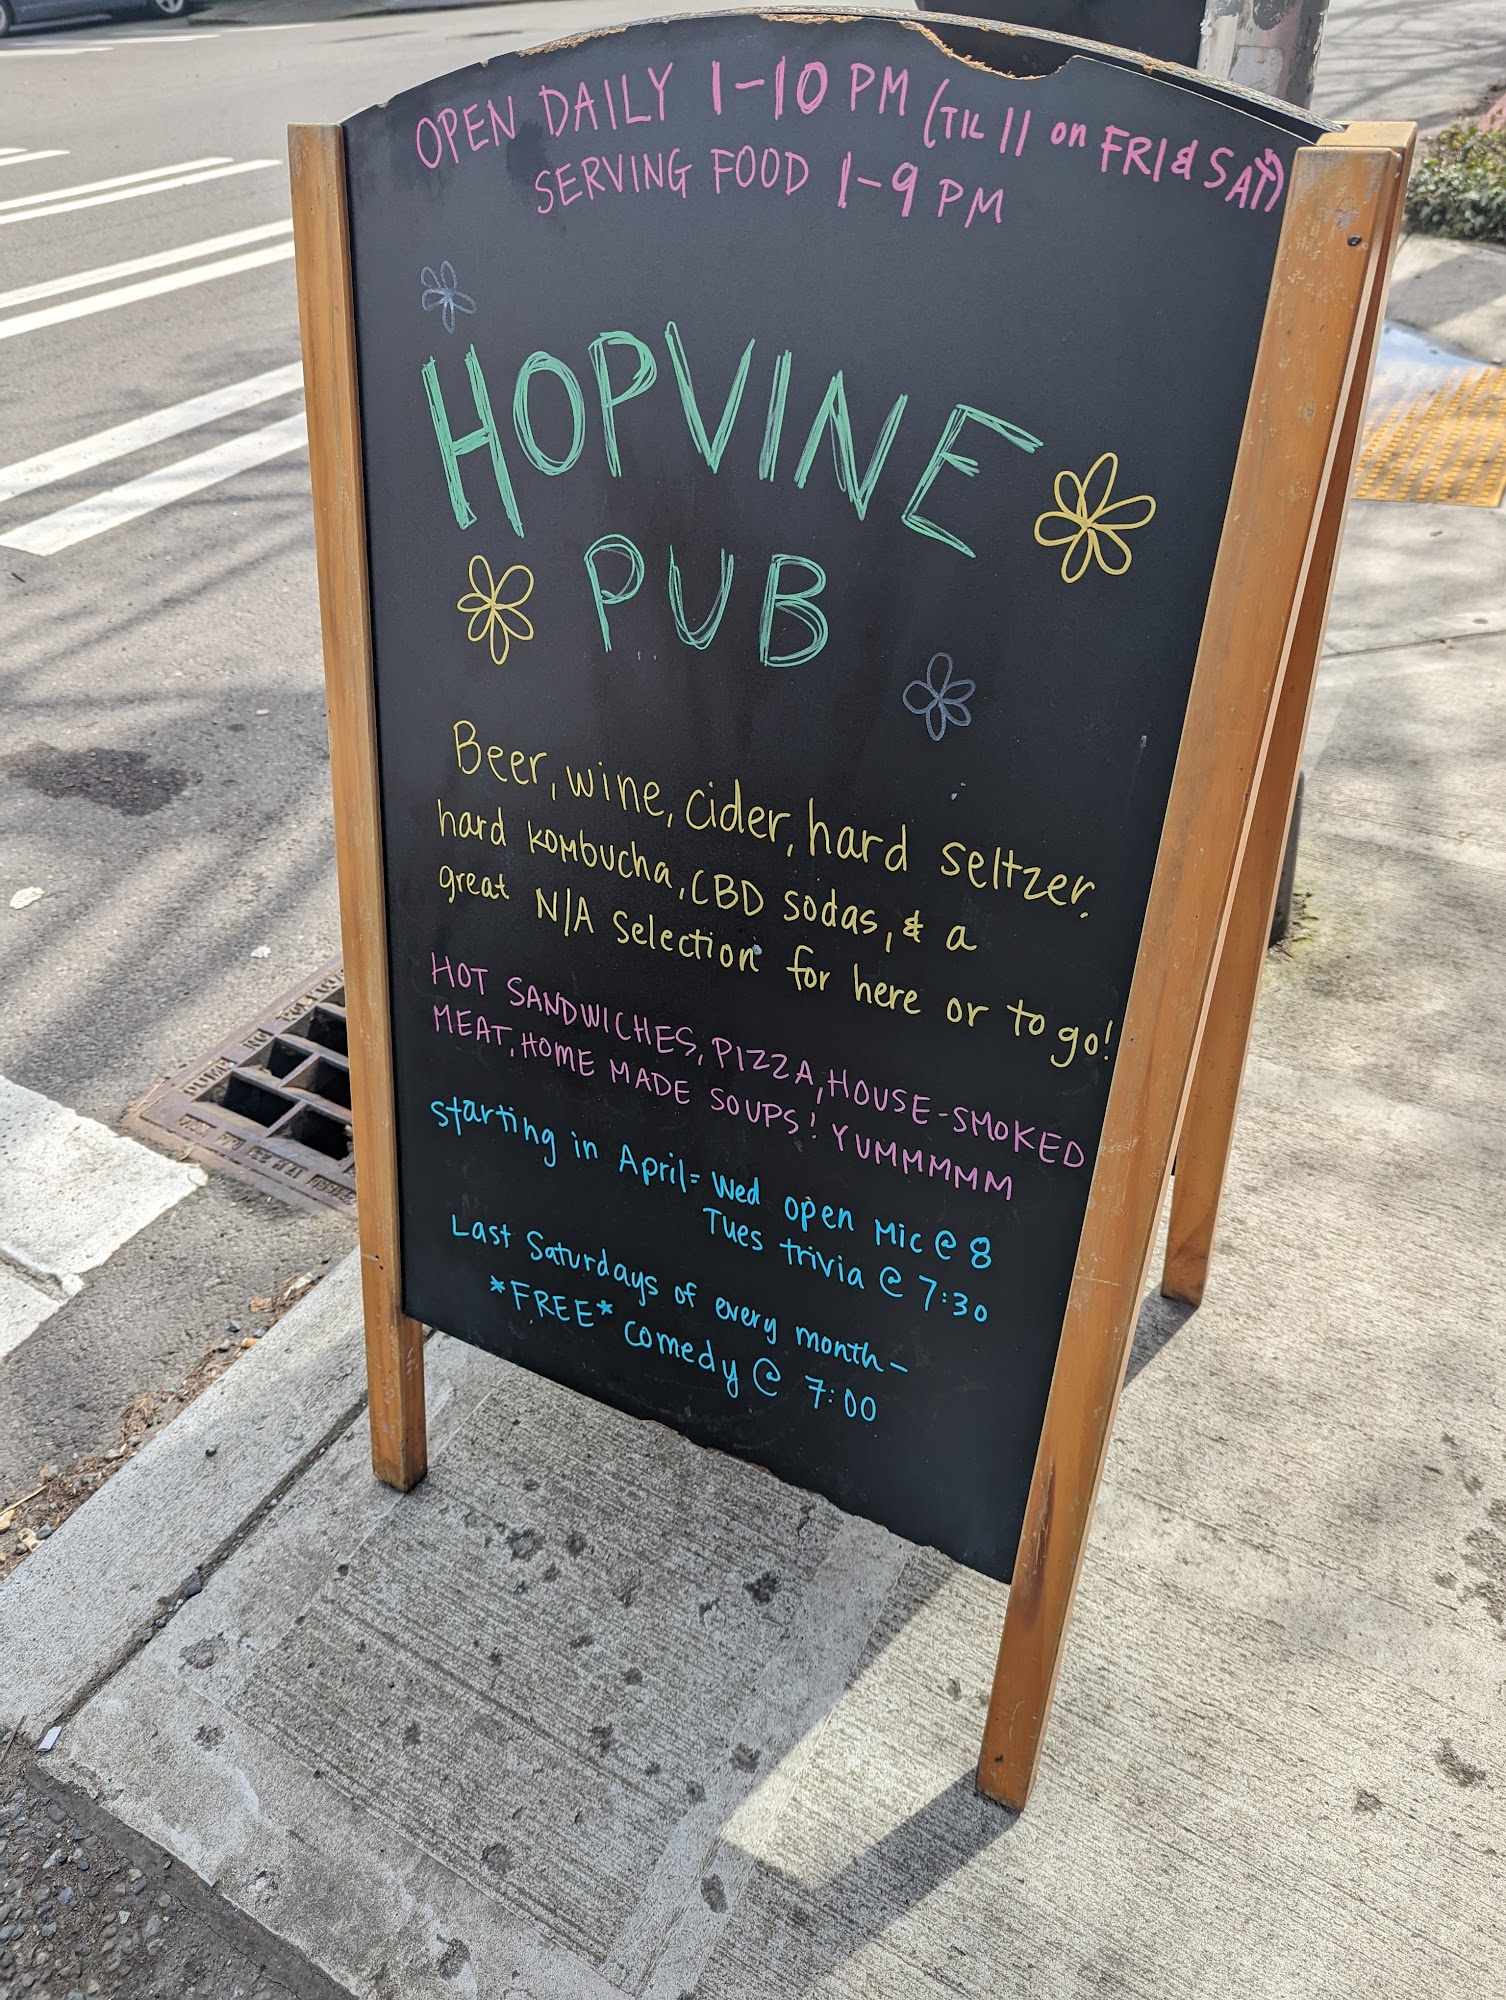 OPEN DAILY 1-10 PM (TIL 11 on FRI & SAT)
SERVING FOOD 1-9 PM
HOPVINE
PUB
Beer, wine, cider, hard seltzer,
hard kombucha, CBD sodas, & a
great N/A selection for here or to go!
HOT SANDWICHES, PIZZA, HOUSE-SMOKED
MEAT, HOME MADE SOUPS! YUMMMMM
starting in April= Wed open mic @ 8
Tues trivia @ 7:30
Last Saturdays of every month-
*FREE* comedy @ 7:00